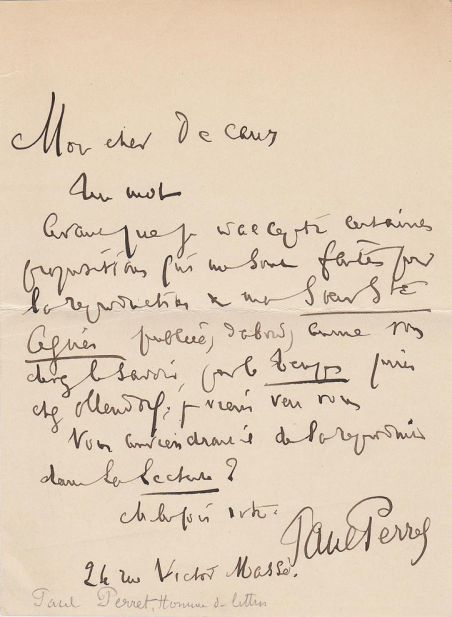 Mon cher De caux
Un mot
Avant que je n'accepte certaines
propositions qui me sont faites pour
la reproduction de ma Soeur Ste
Agnès publiée, d'abord, comme vous
, par le Temps puis
chez Ollendorf, je viens vers vous
Vous conviendrait-il de la reproduire
dans la Lecture ?
Paul Perret
24 rue Victor Massé.
Paul Perret, Homme de lettres